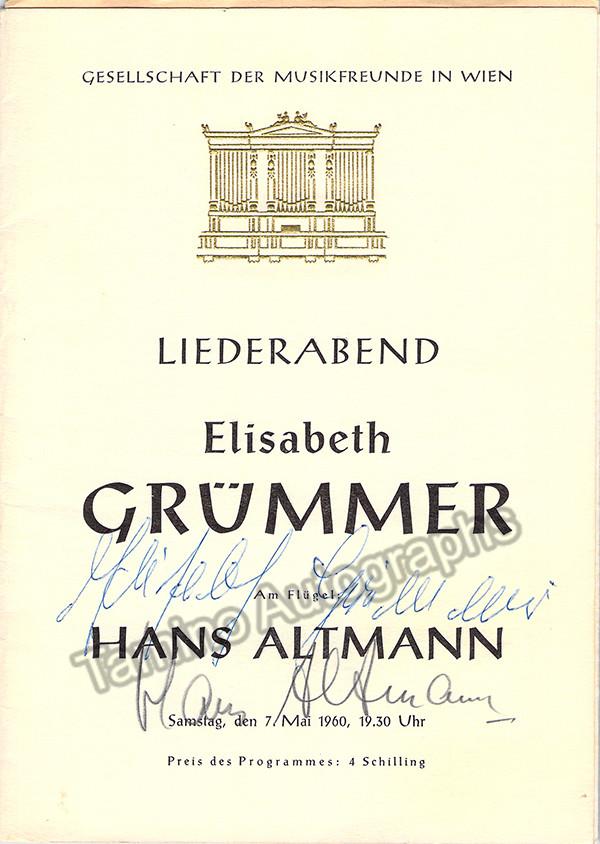 GESELLSCHAFT DER MUSIKFREUNDE IN WIEN
LIEDERABEND
Elisabeth
GRÜMMER
Elisabeth Grümmer
Am Flügel:
HANS ALTMANN
Tamino Autographs
Hans Altmann
Samstag, den 7. Mai 1960, 19.30 Uhr
Preis des Programmes: 4 Schilling